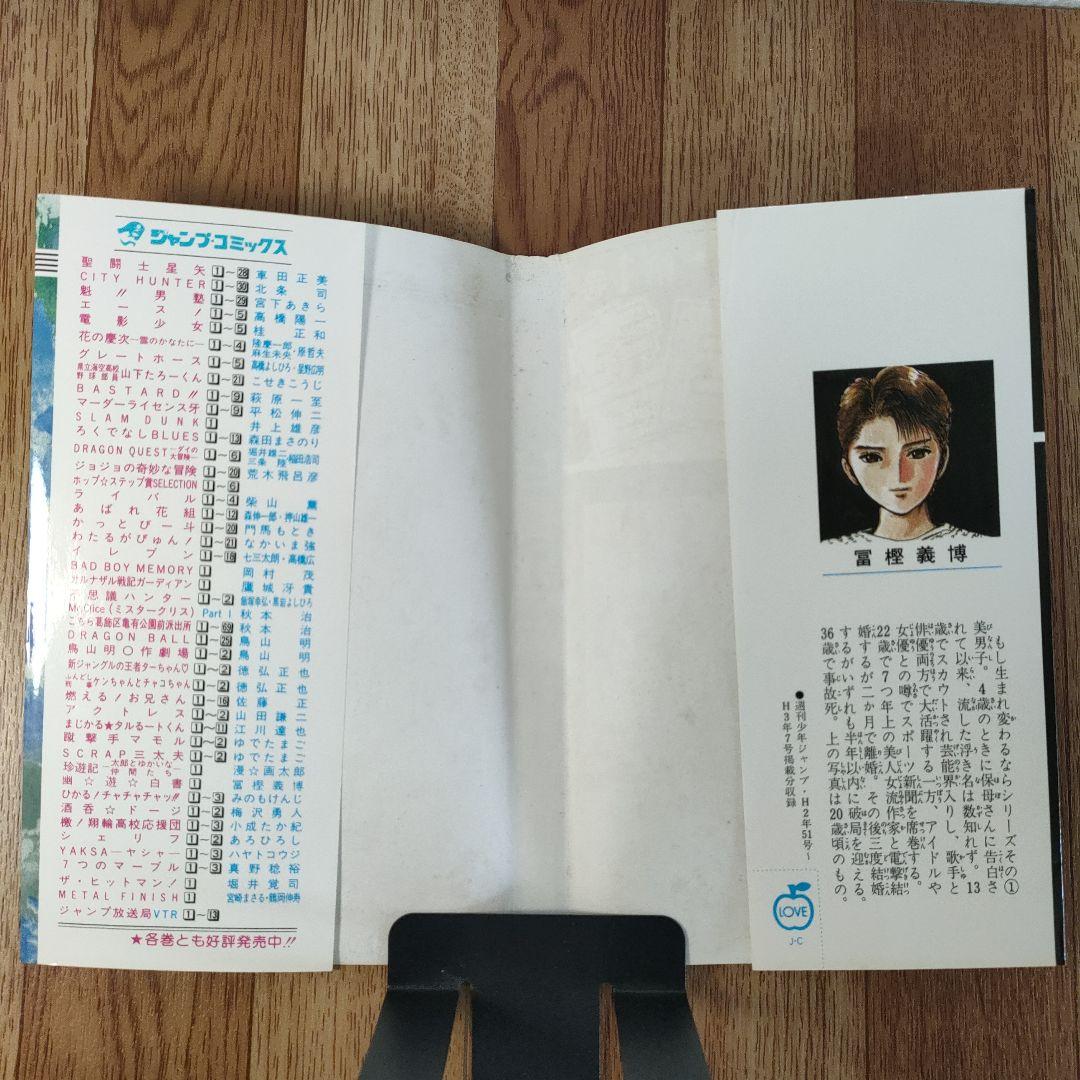 ジャンプ・コミックス
聖闘士星矢 1〜28 車田正美
CITY HUNTER 1〜30 北条司
魁!!男塾 1〜29 宮下あきら
エース! 1〜5 高橋陽一
電影少女 1〜5 桂正和
花の慶次―雲のかなたに― 1〜4 隆慶一郎・原哲夫・麻生未央
グレートホース 1〜5 高橋よしひろ・星野広明
県立海空高校野球部員山下たろーくん 1〜21 こせきこうじ
BASTARD!! 1〜9 萩原一至
マーダーライセンス牙 1〜9 平松伸二
SLAM DUNK 1 井上雄彦
ろくでなしBLUES 1〜13 森田まさのり
DRAGON QUEST―ダイの大冒険― 1〜6 堀井雄二・三条陸・稲田浩司
ジョジョの奇妙な冒険 1〜20 荒木飛呂彦
ホップ☆ステップ賞SELECTION 1〜6
ライバル 1〜4 柴山薫
あばれ花組 1〜12 森伸一郎・押山雄一
かっとび一斗 1〜20 門馬もとき
わたるがぴゅん! 1〜21 なかいま強
イレブン 1〜18 七三太朗・高橋広
BAD BOY MEMORY 1 岡村茂
カルナザル戦記ガーディアン 1 鷹城冴貴
不思議ハンター 1〜2 飯塚幸弘・黒岩よしひろ
Mr.Clice(ミスタークリス) Part I 秋本治
こちら葛飾区亀有公園前派出所 1〜69 秋本治
DRAGON BALL 1〜25 鳥山明
鳥山明〇作劇場 1〜2 鳥山明
新ジャングルの王者ターちゃん♡ 1〜2 徳弘正也
ふんどし刑事ケンちゃんとチャコちゃん 1〜2 徳弘正也
燃える!お兄さん 1〜16 佐藤正
アクトレス 1〜2 山田謙二
まじかる★タルるートくん 1〜11 江川達也
蹴撃手マモル 1〜2 ゆでたまご
SCRAP三太夫 1〜2 ゆでたまご
珍遊記―太郎とゆかいな仲間たち― 1 漫☆画太郎
幽☆遊☆白書 1 冨樫義博
ひかる!チャチャチャッ!! 1〜3 みのもけんじ
酒呑☆ドージ 1〜2 梅沢勇人
檄!翔輪高校応援団 1〜3 小成たか紀
シェリフ 1〜2 あろひろし
YAKSA―ヤシャ― 1〜3 ハヤトコウジ
7つのマーブル 1〜3 真野稔裕
ザ・ヒットマン! 1 堀井覚司
METAL FINISH 1 宮崎まさる・鶴岡伸寿
ジャンプ放送局VTR 1〜13
★各巻とも好評発売中!!
冨樫義博
もし生まれ変わるならシリーズその①
美男子。4歳のときに保母さんに告白さ
れて以来、流した浮き名は数知れず。13
歳でスカウトされ芸能界入りし、歌手と
俳優両方で大活躍する一方、アイドルや
女優との噂でスポーツ新聞を席巻する。
22歳で7つ年上の美人女流作家と電撃結
婚するが二か月で離婚。その後三度結婚
するがいずれも半年以内に破局を迎える。
36歳で事故死。上の写真は20歳頃のもの。
●週刊少年ジャンプ・H2年51号〜
H3年7号掲載分収録
LOVE
J-C